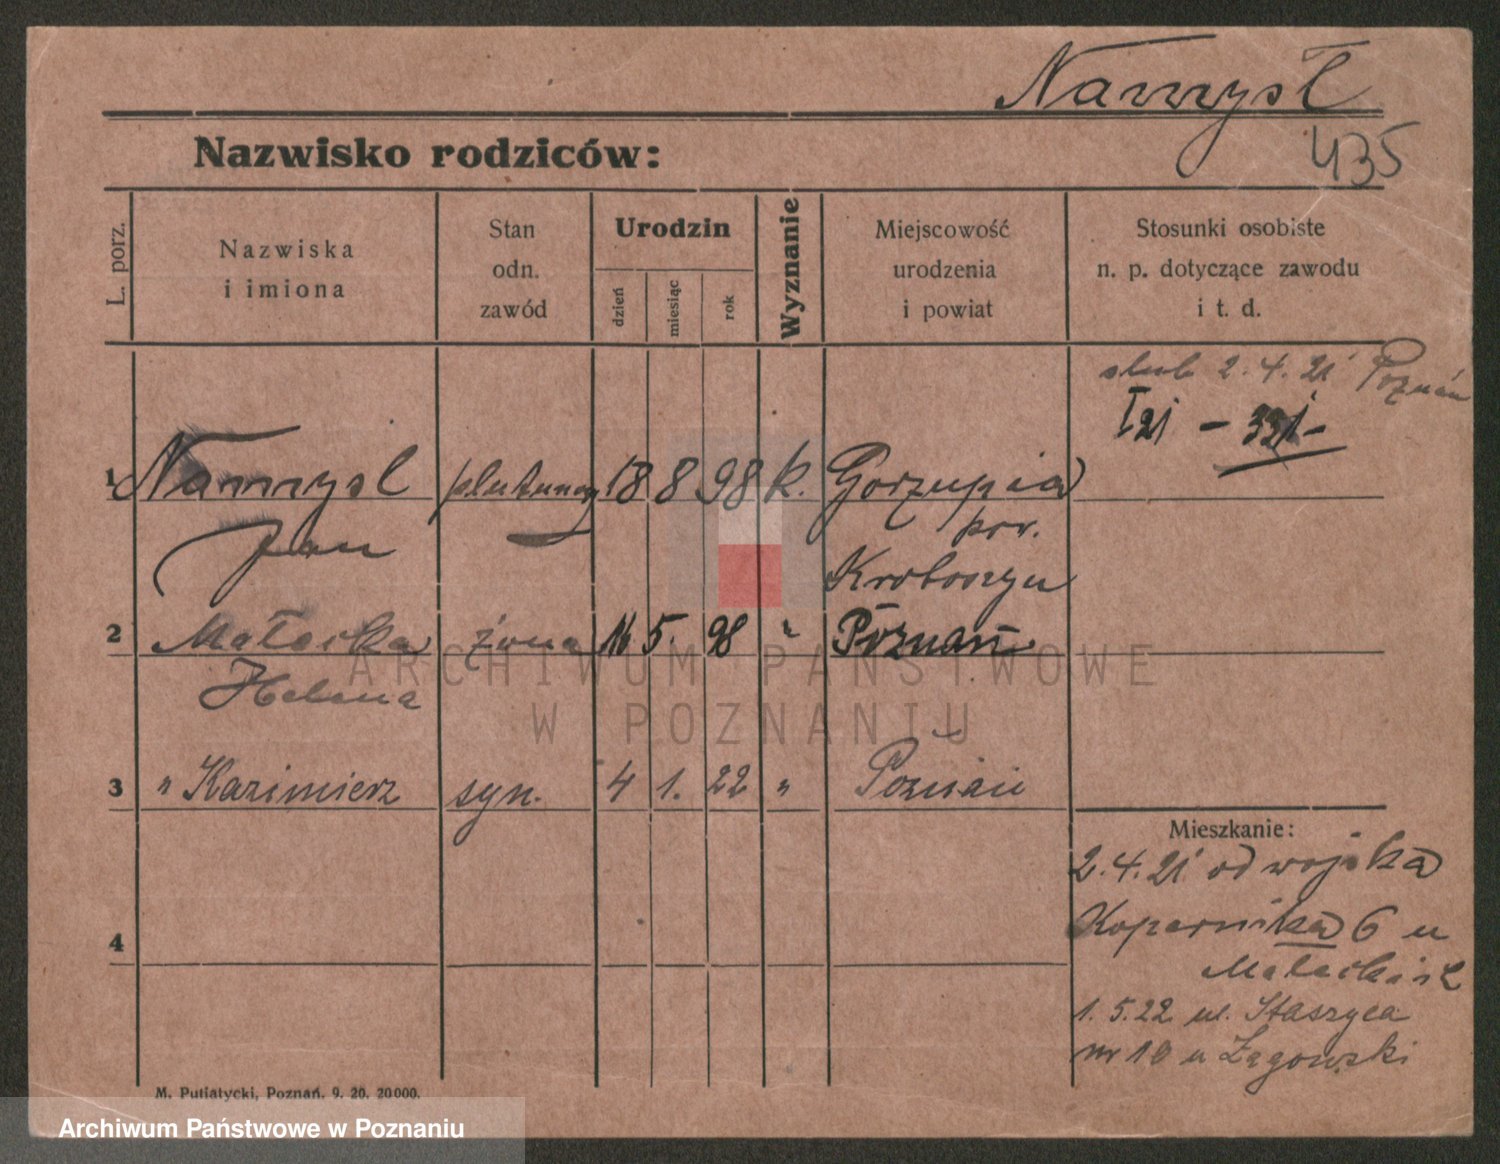 Namysł
435
Nazwisko rodziców:
L. porz.
Nazwiska
i imiona
Stan
odn.
zawód
Urodzin
dzień
miesiąc
rok
Wyznanie
Miejscowość
urodzenia
i powiat
Stosunki osobiste
n. p. dotyczące zawodu
i t. d.
ślub 2. 4. 21 Poznań
I 21 –
1 Namysł 18 8 98 k. Gorzupia
Jan pow.
Krotoszyn
2 Małecka żona 16 5. 98 " Poznań
Helena
3 " Kazimierz syn. 4 1. 22 " Poznań
4
Mieszkanie:
2. 4. 21 od wojska
Kopernika 6 u
Małeckich
1. 5. 22 ul. Staszyca
nr 10 u Łagowski
M. Putiatycki, Poznań. 9. 20. 20000.
ARCHIWUM PAŃSTWOWE
W POZNANIU
Archiwum Państwowe w Poznaniu